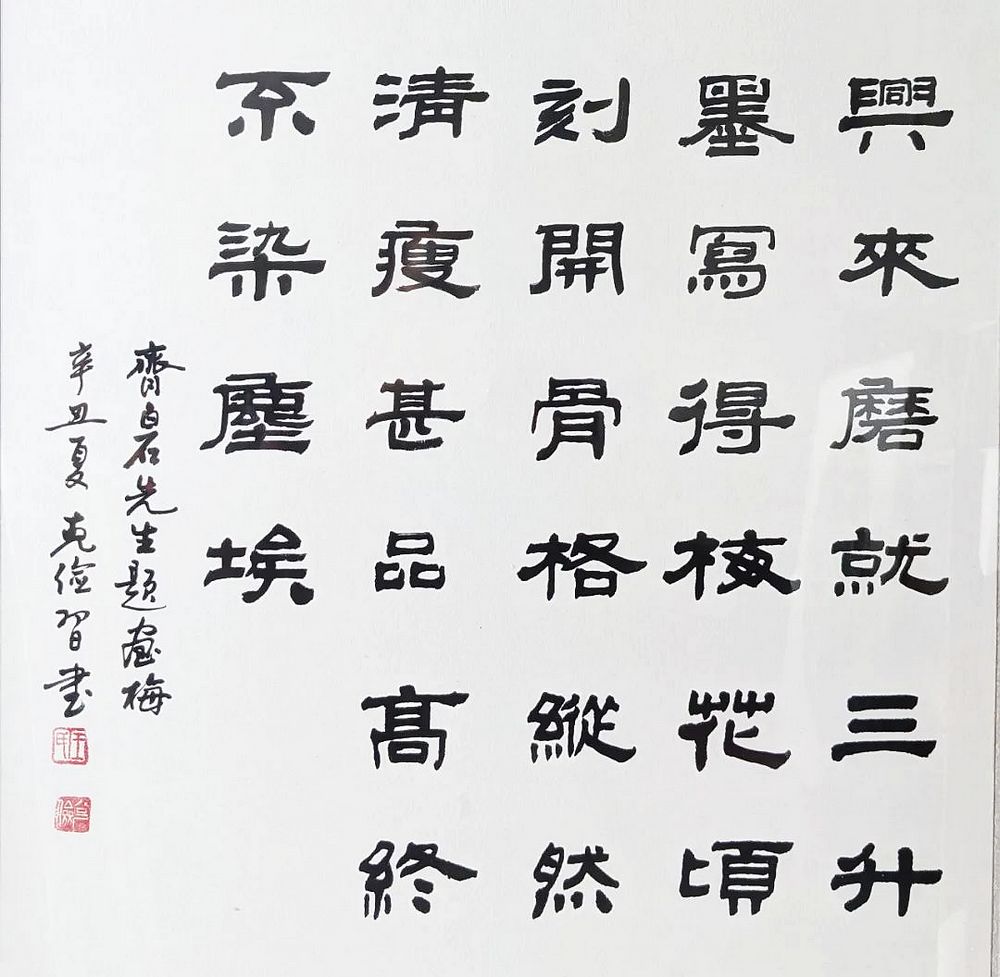 興來磨就三升
墨寫得梅花頃
刻開骨格縱然
清瘦甚品高終
不染塵埃
齊白石先生題畫梅
辛丑夏克儉習書
王氏